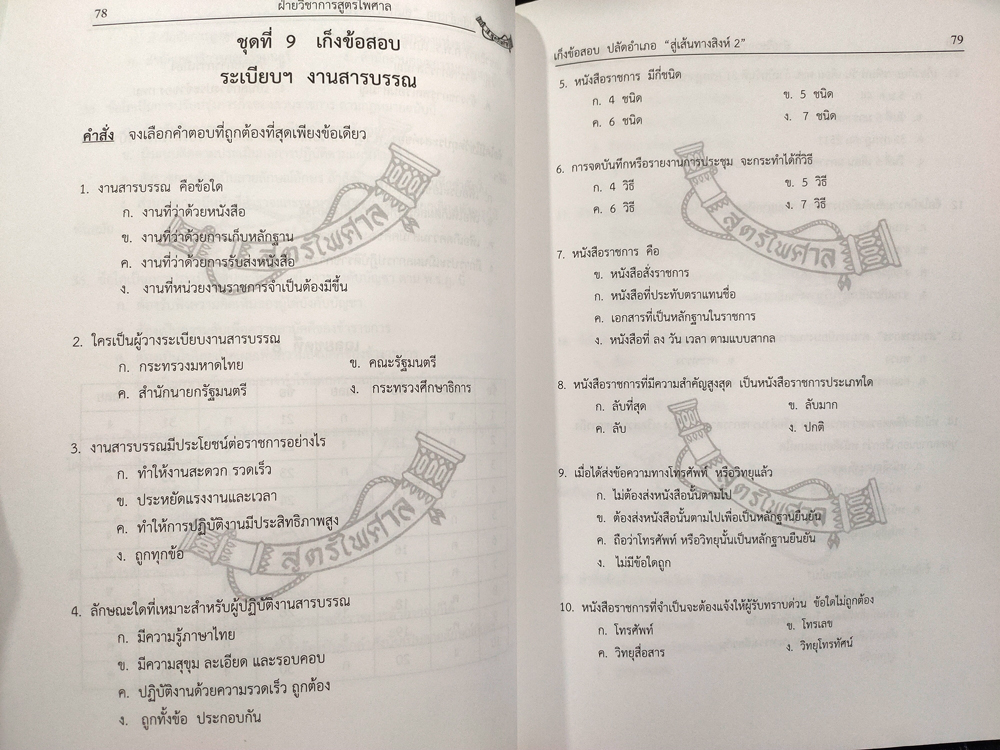 78
ฝ่ายวิชาการสูตรไพศาล
ชุดที่ 9 เก็งข้อสอบ
ระเบียบฯ งานสารบรรณ
คำสั่ง จงเลือกคำตอบที่ถูกต้องที่สุดเพียงข้อเดียว
1. งานสารบรรณ คือข้อใด
ก. งานที่ว่าด้วยหนังสือ
ข. งานที่ว่าด้วยการเก็บหลักฐาน
ค. งานที่ว่าด้วยการรับส่งหนังสือ
ง. งานที่หน่วยงานราชการจำเป็นต้องมีขึ้น
สูตรไพศาล
2. ใครเป็นผู้วางระเบียบงานสารบรรณ
ก. กระทรวงมหาดไทย ข. คณะรัฐมนตรี
ค. สำนักนายกรัฐมนตรี ง. กระทรวงศึกษาธิการ
3. งานสารบรรณมีประโยชน์ต่อราชการอย่างไร
ก. ทำให้งานสะดวก รวดเร็ว
ข. ประหยัดแรงงานและเวลา
ค. ทำให้การปฏิบัติงานมีประสิทธิภาพสูง
ง. ถูกทุกข้อ
สูตรไพศาล
4. ลักษณะใดที่เหมาะสำหรับผู้ปฏิบัติงานสารบรรณ
ก. มีความรู้ภาษาไทย
ข. มีความสุขุม ละเอียด และรอบคอบ
ค. ปฏิบัติงานด้วยความรวดเร็ว ถูกต้อง
ง. ถูกทั้งข้อ ประกอบกัน
เก็งข้อสอบ ปลัดอำเภอ "สู่เส้นทางสิงห์ 2"
79
5. หนังสือราชการ มีกี่ชนิด
ก. 4 ชนิด ข. 5 ชนิด
ค. 6 ชนิด ง. 7 ชนิด
6. การจดบันทึกหรือรายงานการประชุม จะกระทำได้กี่วิธี
ก. 4 วิธี ข. 5 วิธี
ค. 6 วิธี ง. 7 วิธี
สูตรไพศาล
7. หนังสือราชการ คือ
ข. หนังสือสั่งราชการ
ก. หนังสือที่ประทับตราแทนชื่อ
ค. เอกสารที่เป็นหลักฐานในราชการ
ง. หนังสือที่ ลง วัน เวลา ตามแบบสากล
8. หนังสือราชการที่มีความสำคัญสูงสุด เป็นหนังสือราชการประเภทใด
ก. ลับที่สุด ข. ลับมาก
ค. ลับ ง. ปกติ
9. เมื่อได้ส่งข้อความทางโทรศัพท์ หรือวิทยุแล้ว
ก. ไม่ต้องส่งหนังสือนั้นตามไป
ข. ต้องส่งหนังสือนั้นตามไปเพื่อเป็นหลักฐานยืนยัน
ค. ถือว่าโทรศัพท์ หรือวิทยุนั้นเป็นหลักฐานยืนยัน
ง. ไม่มีข้อใดถูก
สูตรไพศาล
10. หนังสือราชการที่จำเป็นจะต้องแจ้งให้ผู้รับทราบด่วน ข้อใดไม่ถูกต้อง
ก. โทรศัพท์ ข. โทรเลข
ค. วิทยุสื่อสาร ง. วิทยุโทรทัศน์